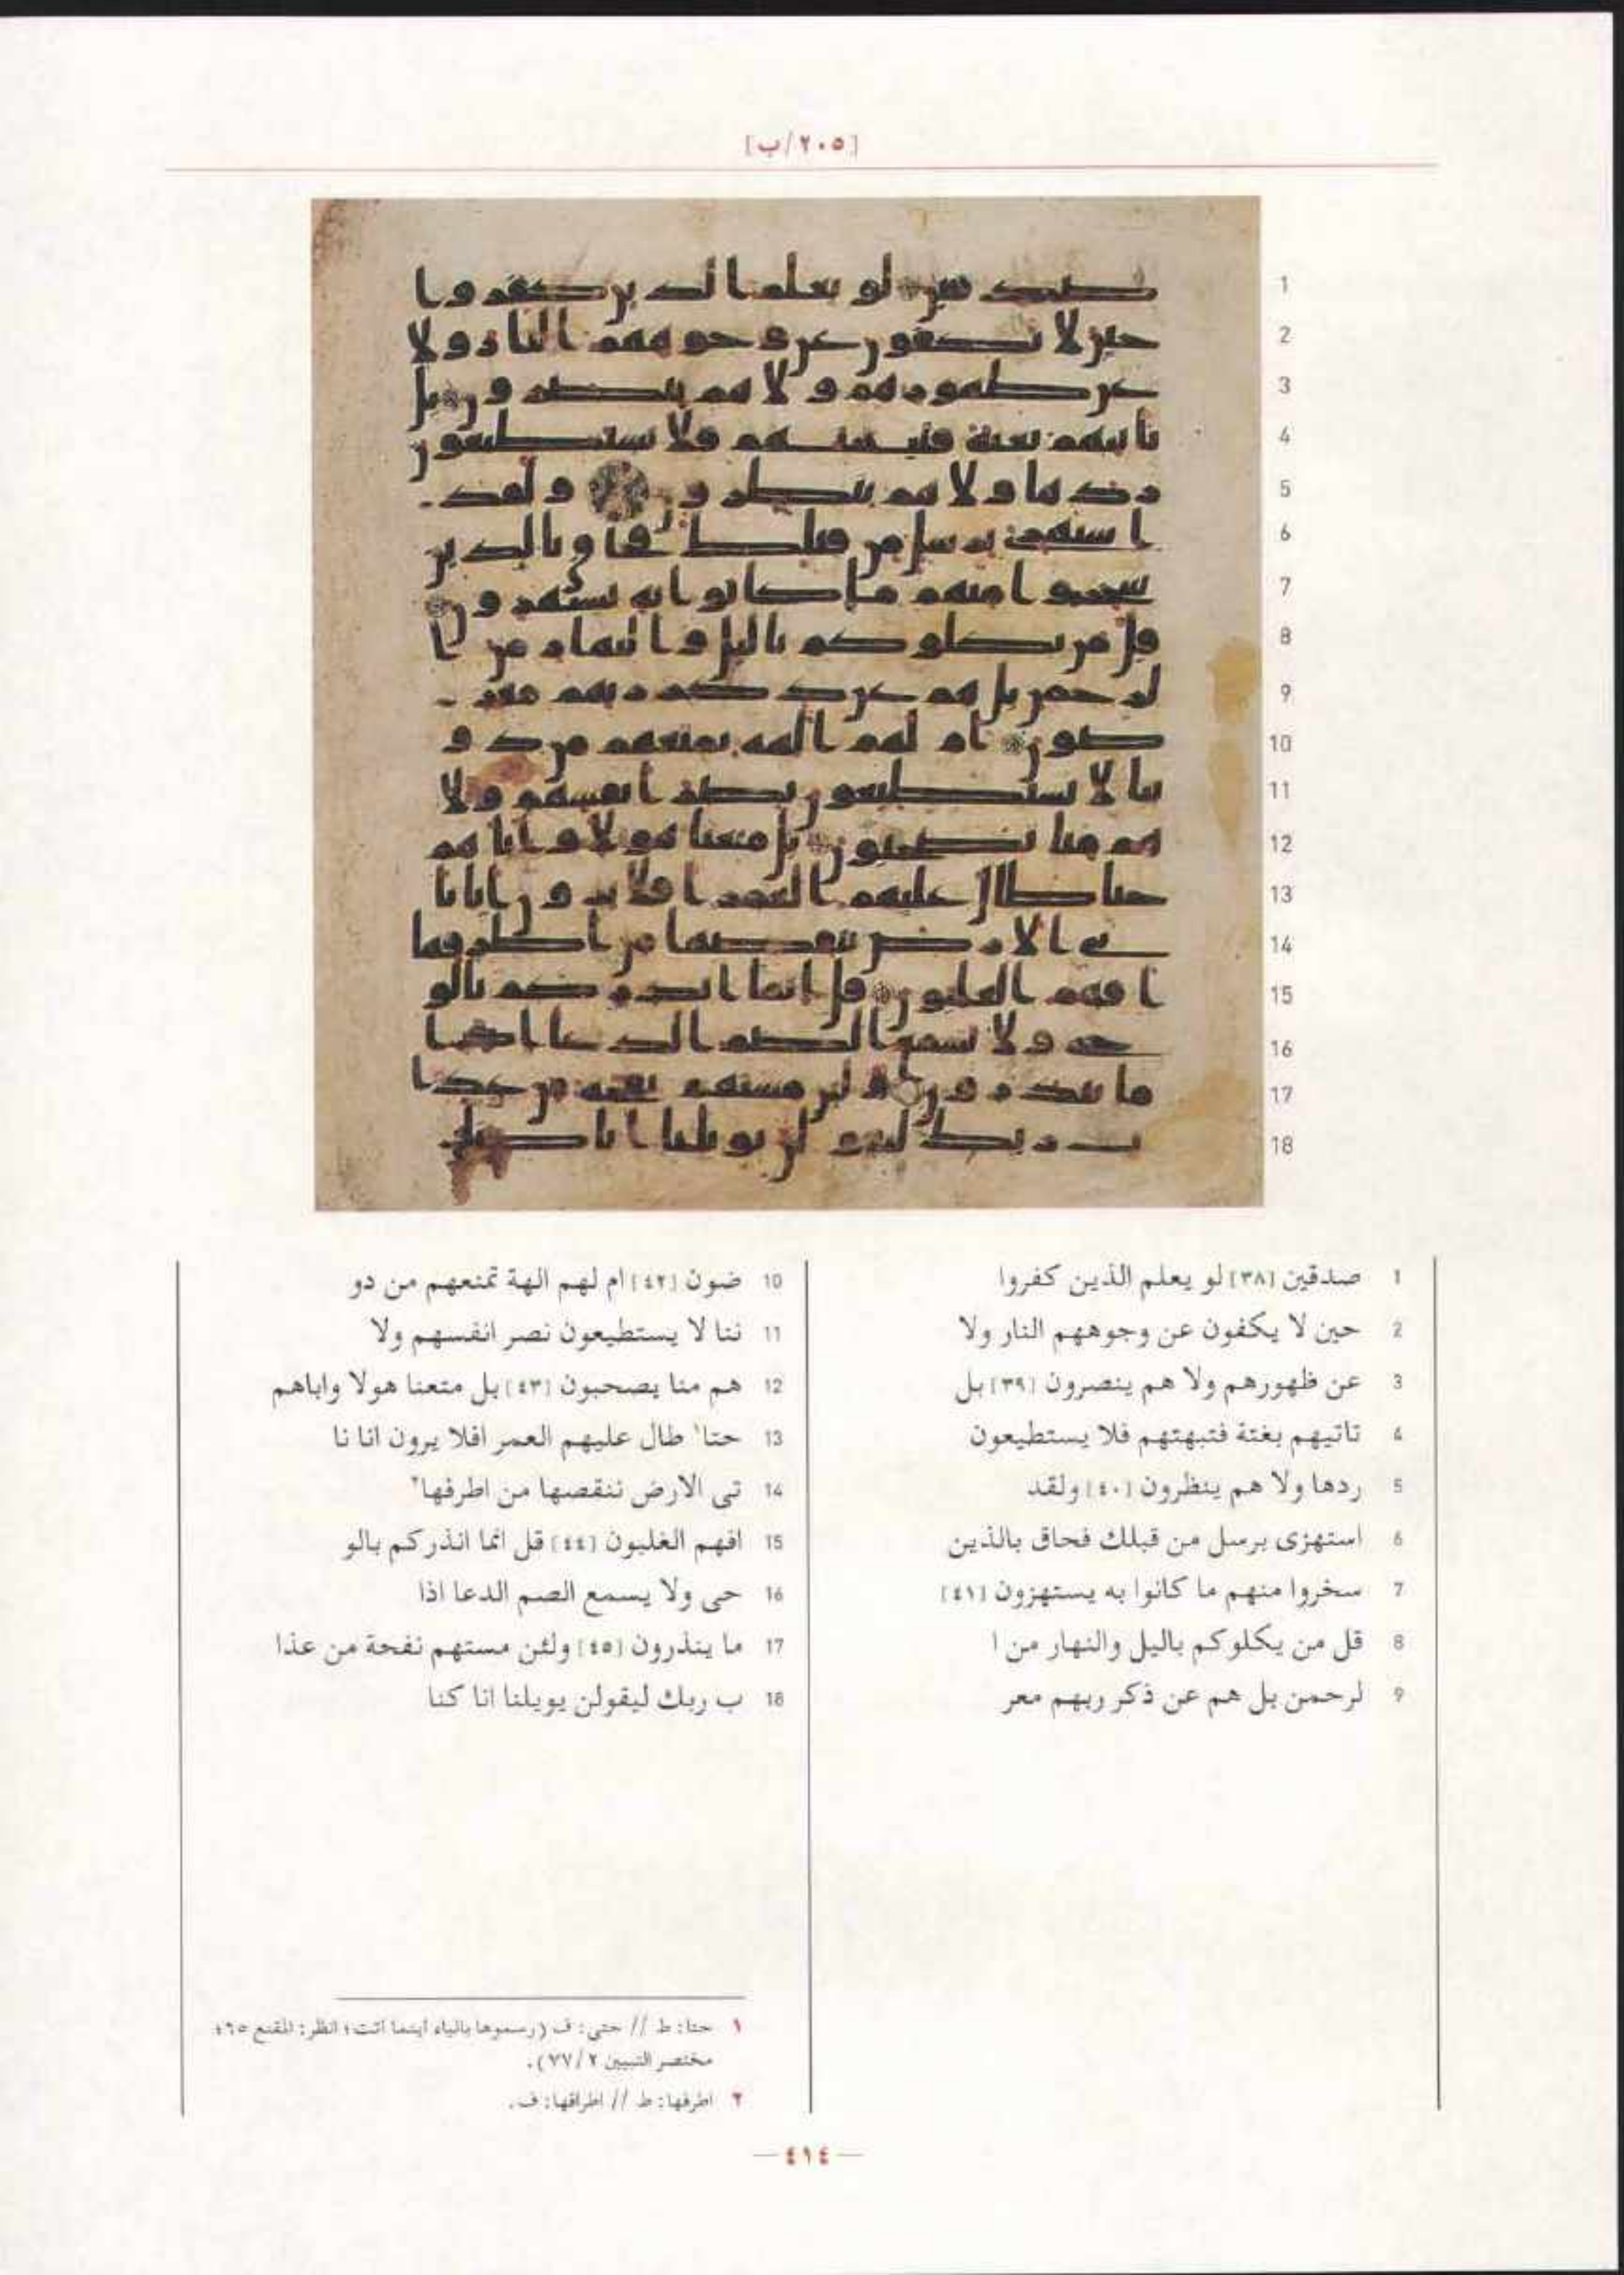 [٢٠٥/ب]
1
2
3
4
5
6
7
8
9
10
11
12
13
14
15
16
17
18
1 صدقين [٣٨] لو يعلم الذين كفروا
2 حين لا يكفون عن وجوههم النار ولا
3 عن ظهورهم ولا هم ينصرون [٣٩] بل
4 تاتيهم بغتة فتبهتهم فلا يستطيعون
5 ردها ولا هم ينظرون [٤٠] ولقد
6 استهزى برسل من قبلك فحاق بالذين
7 سخروا منهم ما كانوا به يستهزون [٤١]
8 قل من يكلوكم باليل والنهار من ا
9 لرحمن بل هم عن ذكر ربهم معر
10 ضون [٤٢] ام لهم الهة تمنعهم من دو
11 ننا لا يستطيعون نصر انفسهم ولا
12 هم منا يصحبون [٤٣] بل متعنا هولا واباهم
13 حتا١ طال عليهم العمر افلا يرون انا نا
14 تى الارض ننقصها من اطرفها٢
15 افهم الغلبون [٤٤] قل انما انذركم بالو
16 حى ولا يسمع الصم الدعا اذا
17 ما ينذرون [٤٥] ولئن مستهم نفحة من عذا
18 ب ربك ليقولن يويلنا انا كنا
١ حتا: ط // حتى: ف (رسموها بالياء أينما أتت؛ انظر: المقنع ٦٥؛
مختصر التبيين ٢/٧٧).
٢ اطرفها: ط // اطرافها: ف.
— ٤١٤ —